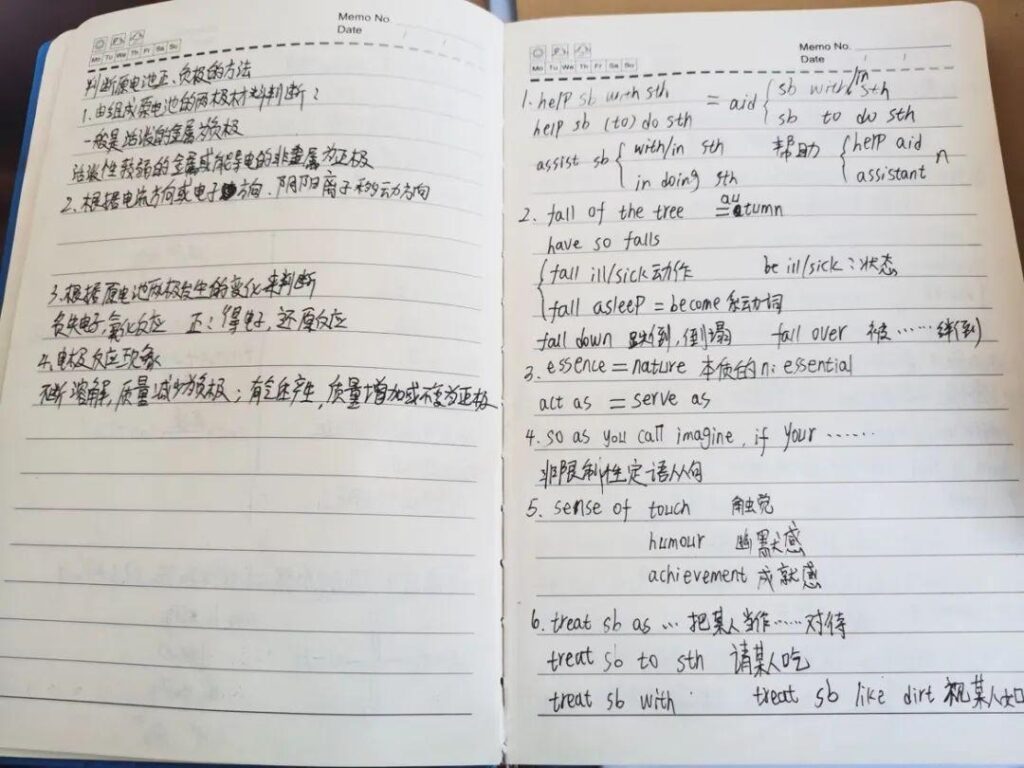 Memo No.
Date
Mo Tu We Th Fr Sa Su
判断原电池正、负极的方法
1.由组成原电池的两极材料判断:
一般是活泼的金属为负极
活泼性较弱的金属或能导电的非金属为正极
2.根据电流方向或电子方向.阴阳离子移动方向
3.根据原电池两极发生的变化来判断
负失电子,氧化反应 正:得电子,还原反应
4.电极反应现象
不断溶解,质量减少为负极;有气体产生,质量增加或不变为正极
Memo No.
Date
Mo Tu We Th Fr Sa Su
1. help sb with sth = aid { sb with/in sth
help sb (to) do sth sb to do sth
assist sb { with/in sth 帮助 { help aid n
in doing sth assistant
2. fall of the tree = autumn
have so falls
{ fall ill/sick 动作 be ill/sick:状态
fall asleep = become 系动词
fall down 跌倒,倒塌 fall over 被……绊倒)
3. essence = nature 本质的n: essential
act as = serve as
4. so as you call imagine, if your ……
非限制性定语从句
5. sense of touch 触觉
humour 幽默感
achievement 成就感
6. treat sb as … 把某人当作……对待
treat sb to sth 请某人吃
treat sb with treat sb like dirt 视某人如